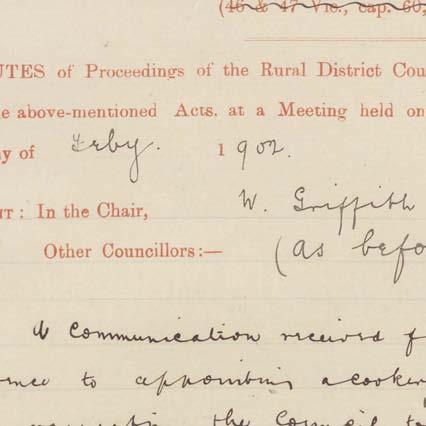 (46 & 47 Vic., cap. 60,
UTES of Proceedings of the Rural District Cou
e above-mentioned Acts, at a Meeting held on
ay of Feby. 1902.
NT: In the Chair, W. Griffith
Other Councillors:— (as befo
A communication received f
ence to appointing a cooker
the Council to